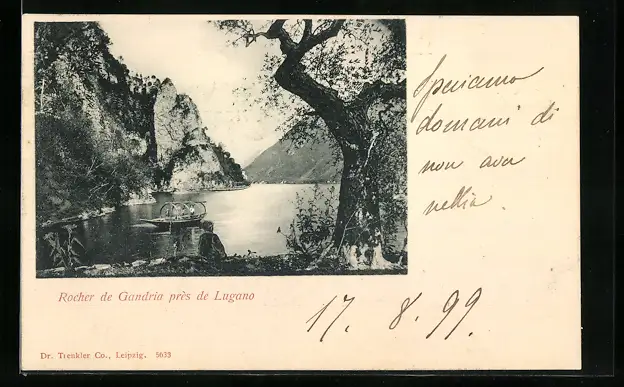 Speriamo
domani di
non aver
nebbia.
Rocher de Gandria près de Lugano
17. 8. 99.
Dr. Trenkler Co., Leipzig. 5033